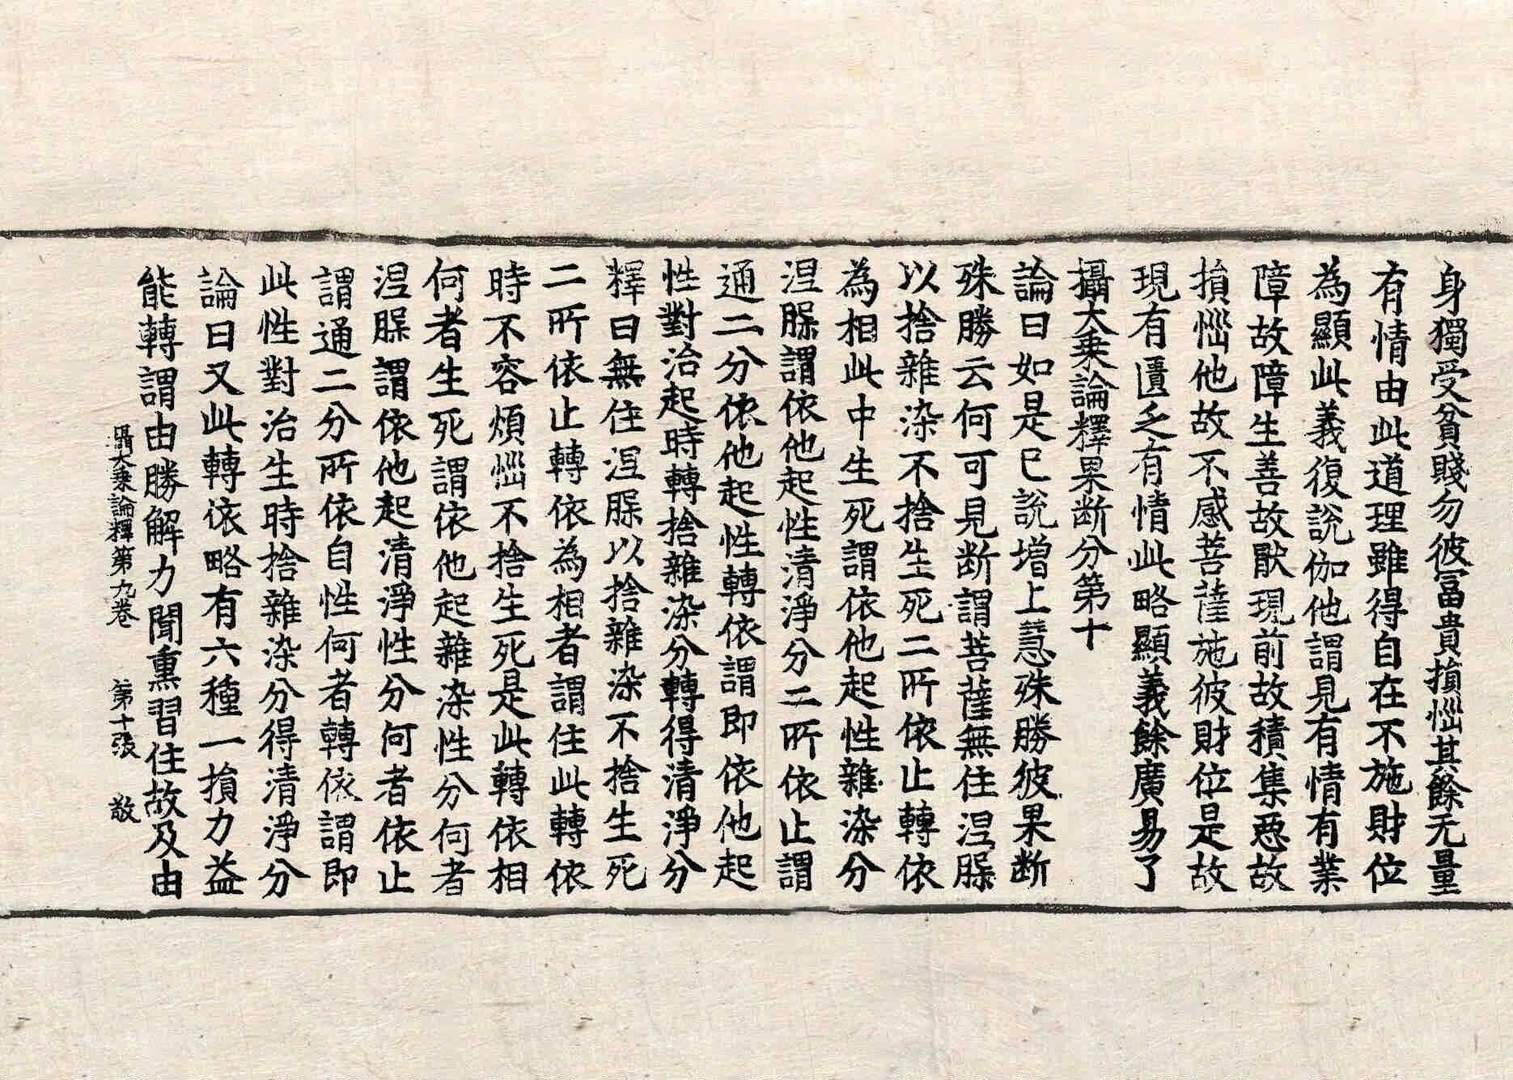 身獨受貧賤勿彼冨貴損惱其餘无量
有情由此道理雖得自在不施財位
為顯此義復說伽他謂見有情有業
障故障生善故厭現前故積集惡故
損惱他故不感菩薩施彼財位是故
現有匱乏有情此略顯義餘廣易了
攝大乗論釋果断分第十
論曰如是已說增上慧殊勝彼果断
殊勝云何可見断謂菩薩無住涅槃
以捨雜染不捨生死二所依止轉依
為相此中生死謂依他起性雜染分
涅槃謂依他起性清淨分二所依止謂
通二分依他起性轉依謂即依他起
性對治起時轉捨雜染分轉得清淨分
釋曰無住涅槃以捨雜染不捨生死
二所依止轉依為相者謂住此轉依
時不容煩惱不捨生死是此轉依相
何者生死謂依他起雜染性分何者
涅槃謂依他起清淨性分何者依止
謂通二分所依自性何者轉依謂即
此性對治生時捨雜染分得清淨分
論曰又此轉依略有六種一損力益
能轉謂由勝解力聞熏習住故及由
攝大乗論釋第九卷　第十張　敬